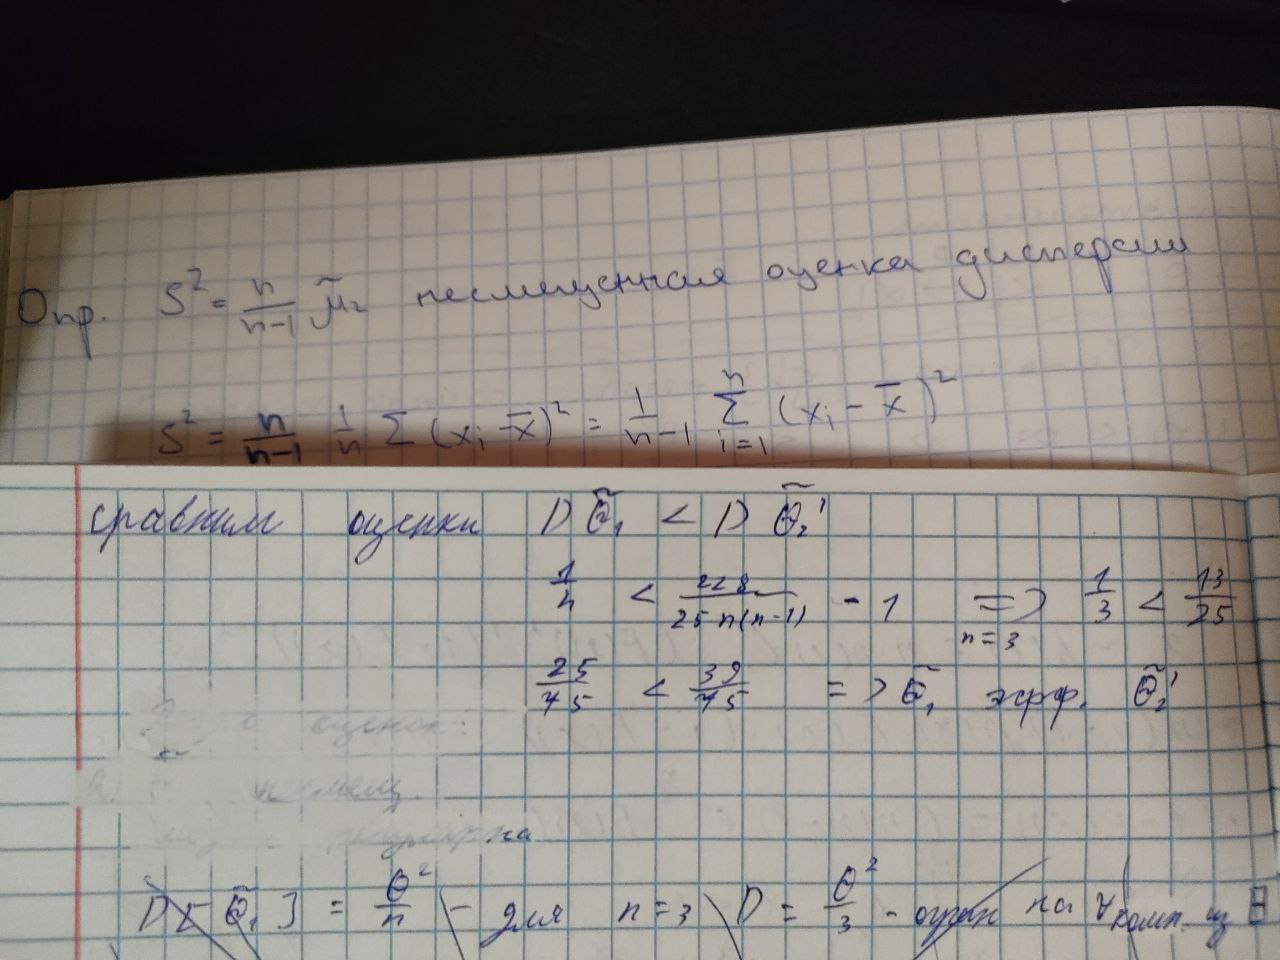 Опр. S² = n/(n-1) μ̃₂ несмещенная оценка дисперсии
S² = n/(n-1) 1/n Σ(xᵢ - x̄)² = 1/(n-1) Σᵢ₌₁ⁿ (xᵢ - x̄)²
сравним оценки D θ̃₁ < D θ̃₂'
1/n < 228/(25n(n-1)) - 1 => n=3 1/3 < 13/25
25/75 < 39/75 => θ̃₁ эфф. θ̃₂'
оценок:
D[θ̃₁] = θ²/n - для n=3 D = θ²/3 - огран на ∀ комп. из Θ